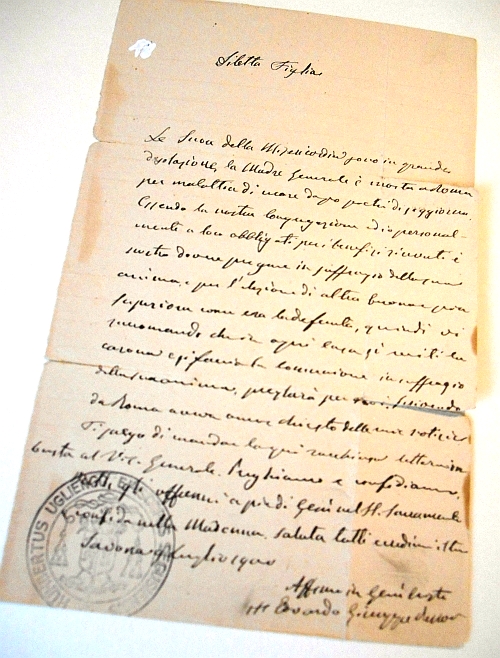 Diletta Figlia
Le Suore della Misericordia sono in grande
desolazione, la Madre Generale è morta a Roma
per malattia di cuore dopo pochi dì soggiorno.
Essendo la nostra Congregazione ed io personal-
mente a loro obbligati per i benefizi ricevuti è
nostro dovere pregare in suffragio della sua
anima, e per l'elezione di altra buona e pia
superiora come era la defunta, quindi vi
raccomando che in ogni casa si reciti la
corona e si faccia la comunione in suffragio
della sua anima, pregherà per noi. Scrivendo
da Roma aveva chiesto delle mie notizie
Ti prego di mandare la qui racchiusa letterina
busta al Vic. Generale. Preghiamo e confidiamo,
gli affanni a piedi Gesù nel SS. Sacramento
e confida nella Madonna, saluta tutti credimi
Savona 9 Luglio 1900
Affmo in Gesù
Giuseppe